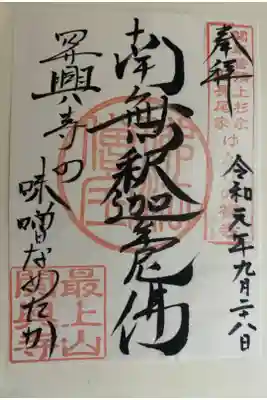 奉拝
令和元年九月二十八日
南無釈迦牟尼佛
関興寺の
味噌なめたか
最上山
關興寺